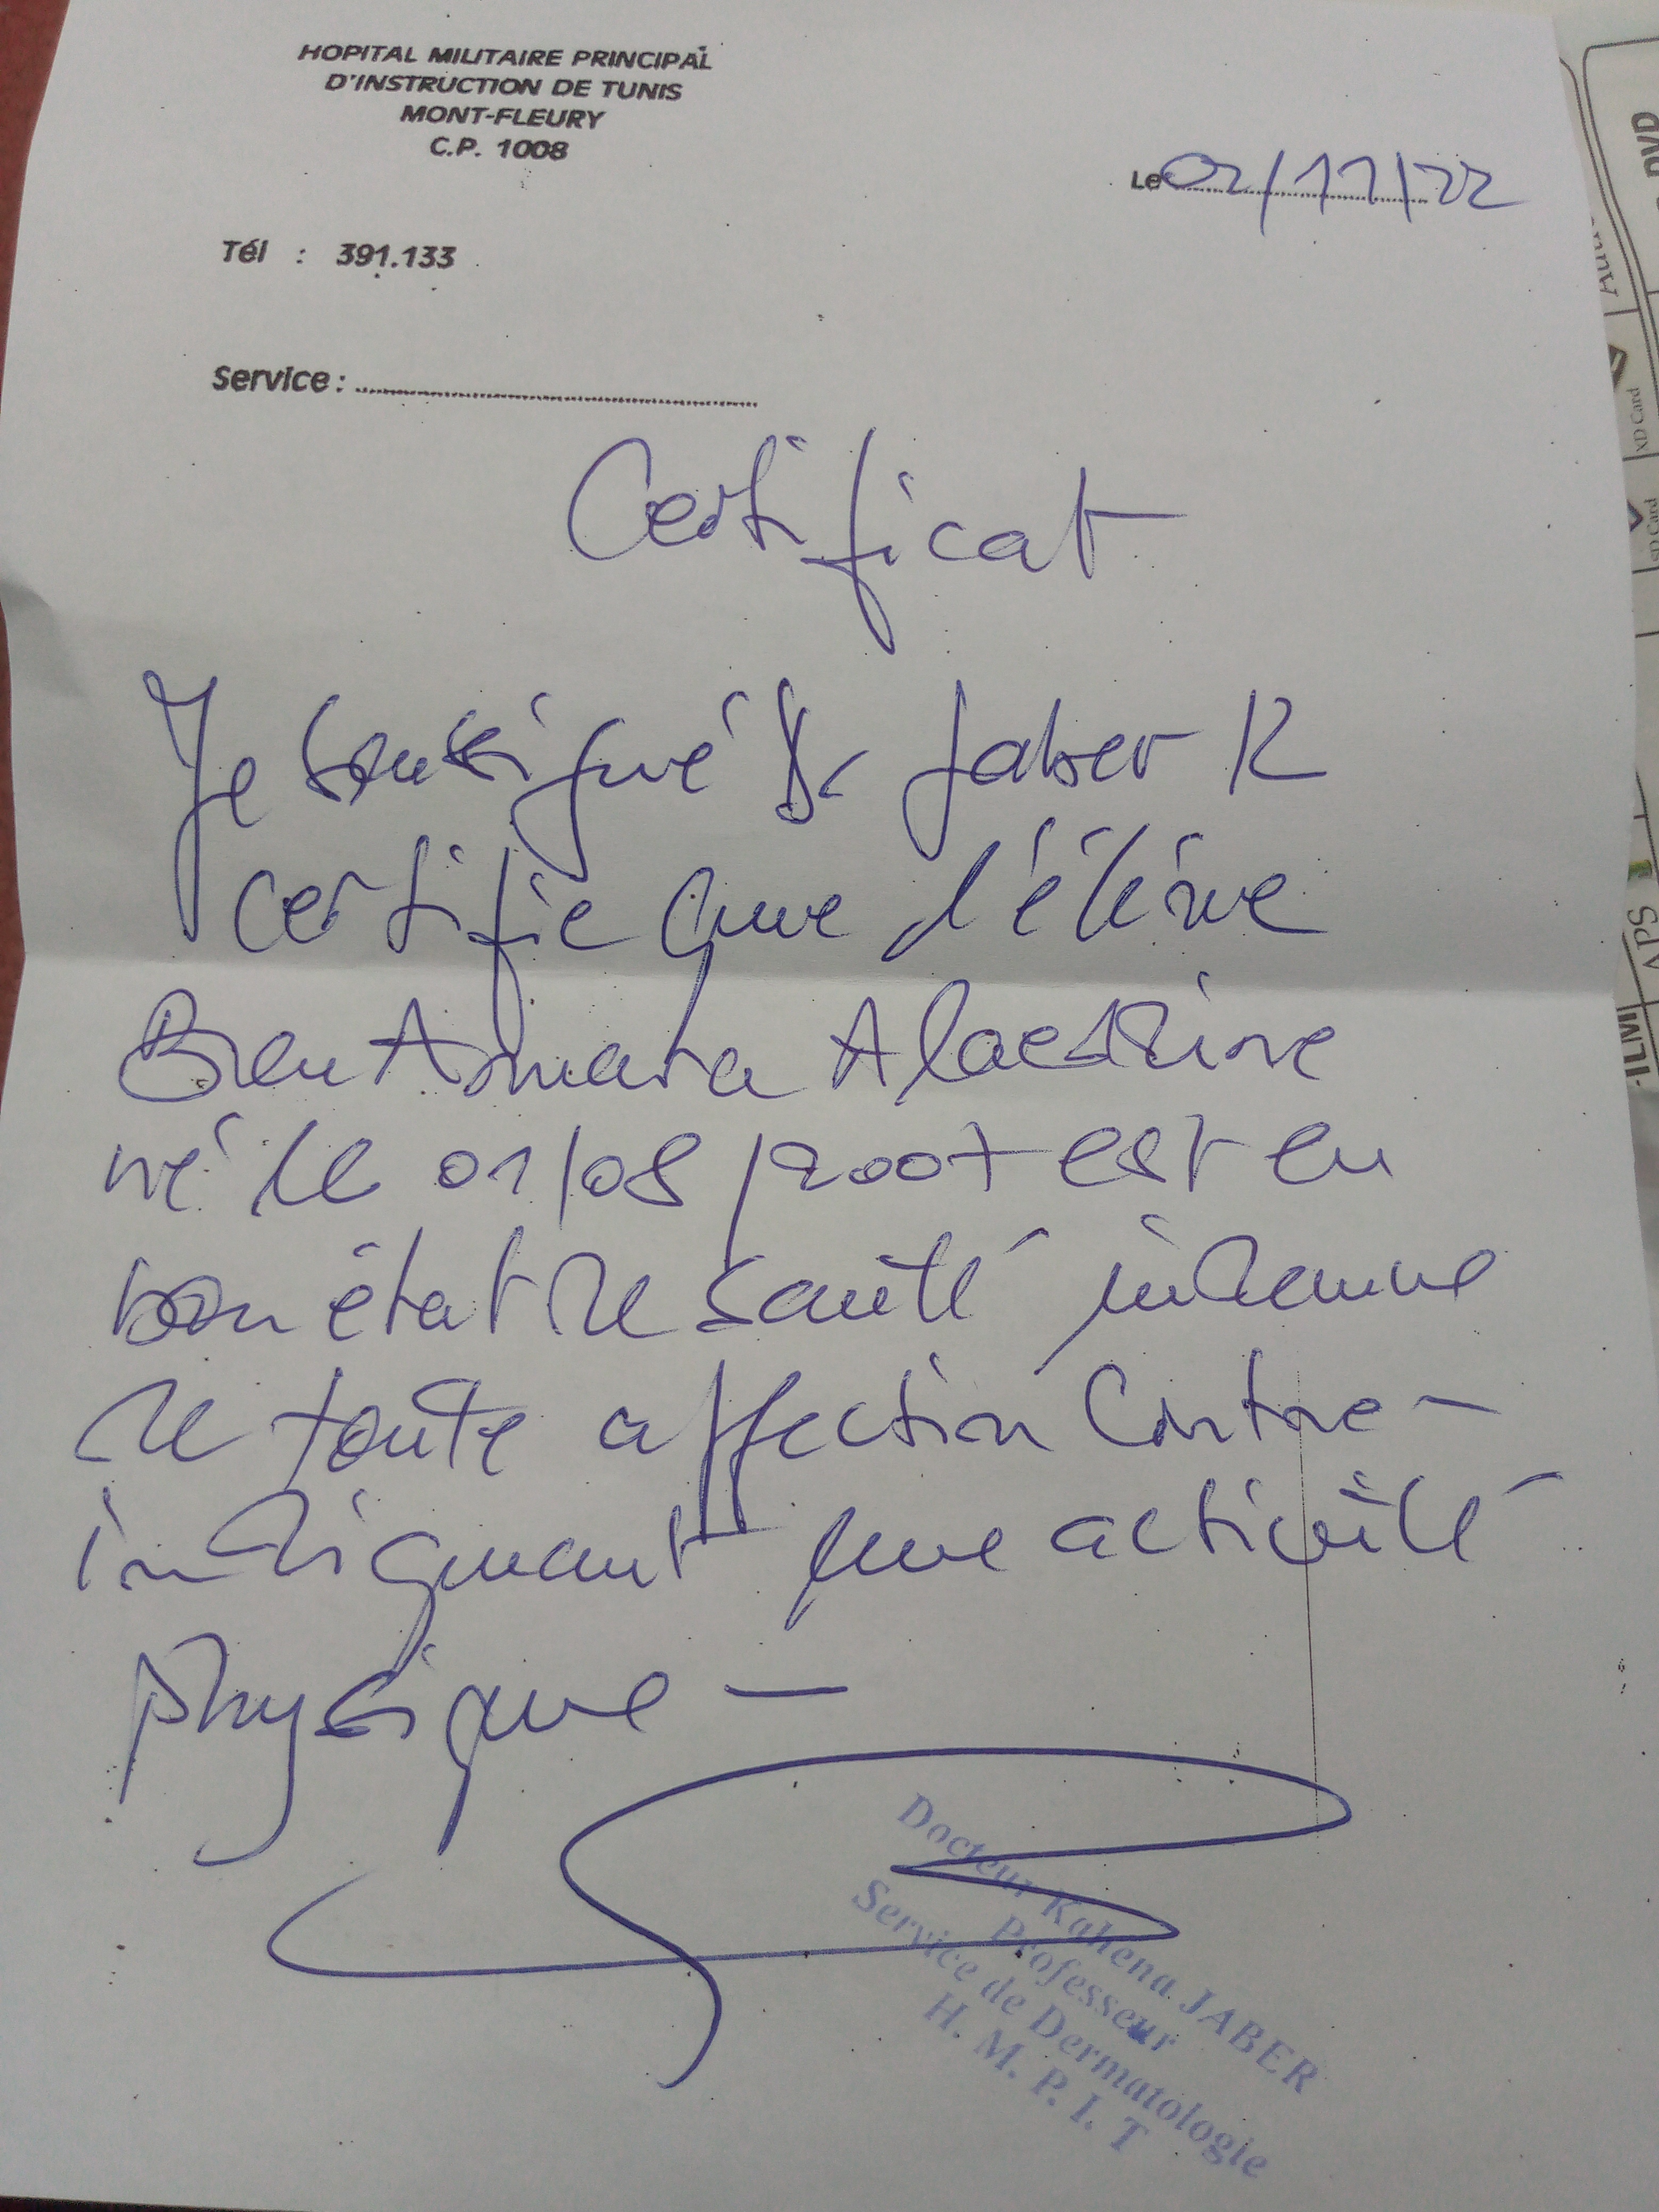 HOPITAL MILITAIRE PRINCIPAL
D'INSTRUCTION DE TUNIS
MONT-FLEURY
C.P. 1008
Le 02/11/22
Tél : 391.133
Service :
Certificat
Je soussigné Dr Jaber K
certifie que l'élève
Ben Amara Alaeddine
né le 01/08/2007 est en
bon état de santé indemne
de toute affection contre-
indiquant une activité
physique -
Docteur Kahena JABER
Professeur
Service de Dermatologie
H. M. P. I. T
DVD
XD Card
SD Card
APS